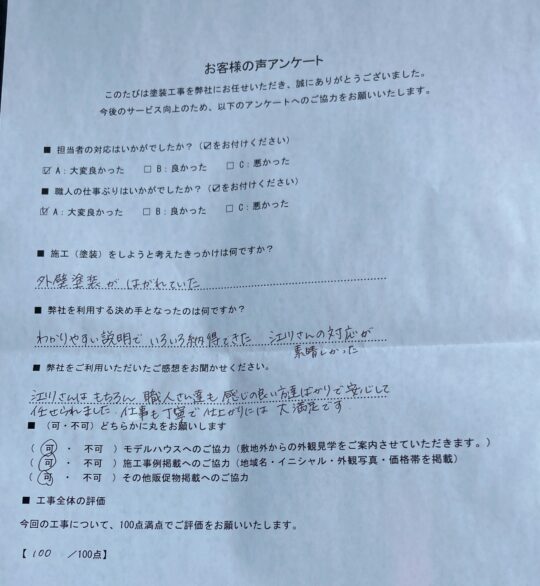 お客様の声アンケート
このたびは塗装工事を弊社にお任せいただき、誠にありがとうございました。
今後のサービス向上のため、以下のアンケートへのご協力をお願いいたします。
■ 担当者の対応はいかがでしたか?(☑をお付けください)
☑ A:大変良かった □ B:良かった □ C:悪かった
■ 職人の仕事ぶりはいかがでしたか?(☑をお付けください)
☑ A:大変良かった □ B:良かった □ C:悪かった
■ 施工(塗装)をしようと考えたきっかけは何ですか?
外壁塗装が はがれていた
■ 弊社を利用する決め手となったのは何ですか?
わかりやすい説明で いろいろ納得できた 江川さんの対応が
素晴しかった
■ 弊社をご利用いただいたご感想をお聞かせください。
江川さんは もちろん 職人さん達も 感じの良い方達ばかりで安心して
任せられました 仕事も丁寧で仕上がりには 大満足です
■ (可・不可)どちらかに丸をお願いします
( 可 ・ 不可 )モデルハウスへのご協力(敷地外からの外観見学をご案内させていただきます。)
( 可 ・ 不可 )施工事例掲載へのご協力(地域名・イニシャル・外観写真・価格帯を掲載)
( 可 ・ 不可 )その他販促物掲載へのご協力
■ 工事全体の評価
今回の工事について、100点満点でご評価をお願いいたします。
【 100 /100点】